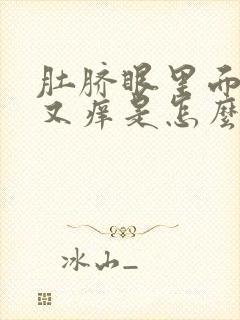 肚脐眼里而
又痒是怎麼
冰山_